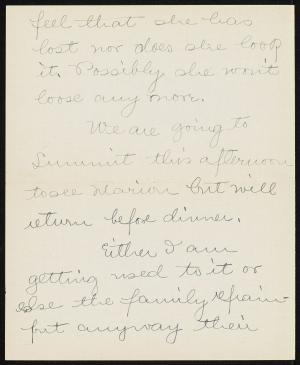 feel that she has
lost nor does she look
it. Possibly she won't
loose any more.
We are going to
Summit this afternoon
to see Marion but will
return before dinner.
Either I am
getting used to it or
else the family refrain
but anyway their